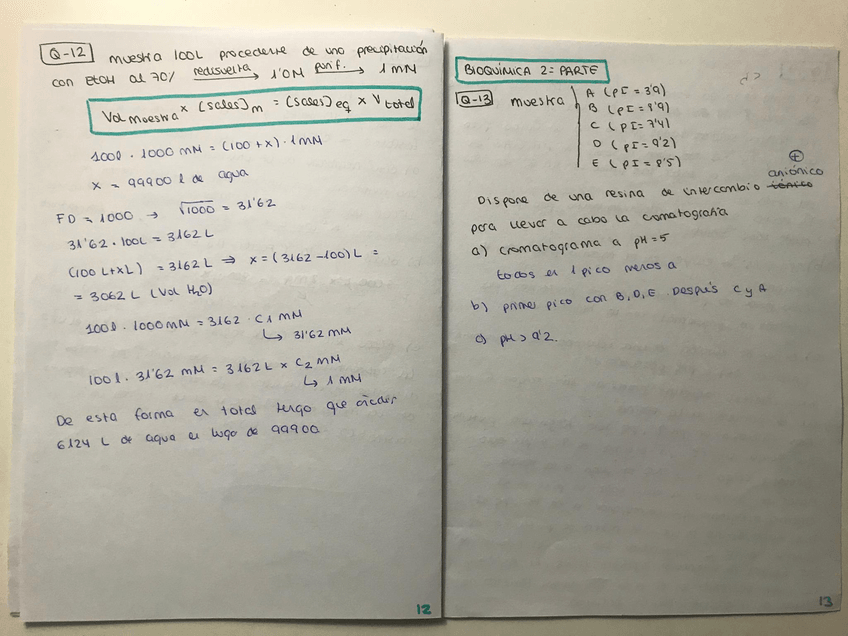 Q-12 muestra 100L procedente de una precipitación
con EtOH al 70% redisuelta → 1'0M purif. → 1 mM
Vol muestra × [sales]m = [sales]eq × V total
100l · 1000 mM = (100 + x) · 1mM
x = 99900 l de agua
FD = 1000 → √1000 = 31'62
31'62 · 100L = 3162 L
(100 L+xL) = 3162 L ⇒ x = (3162-100)L =
= 3062 L (Vol H2O)
100l · 1000mM = 3162 · C1 mM
↳ 31'62 mM
100l · 31'62 mM = 3162L × C2 mM
↳ 1 mM
De esta forma en total tengo que añadir
6124 L de agua en lugar de 99900
12
BIOQUÍMICA 2ª PARTE
Q-13 muestra
A (pI = 3'9)
B (pI = 8'9)
C (pI = 7'4)
D (pI = 9'2)
E (pI = 8'5)
+
aniónico
Dispone de una resina de intercambio iónico
para llevar a cabo la cromatografía
a) cromatograma a pH=5
todos en 1 pico menos a
b) primer pico con B, D, E. Después C y A
c) pH > 9'2.
13